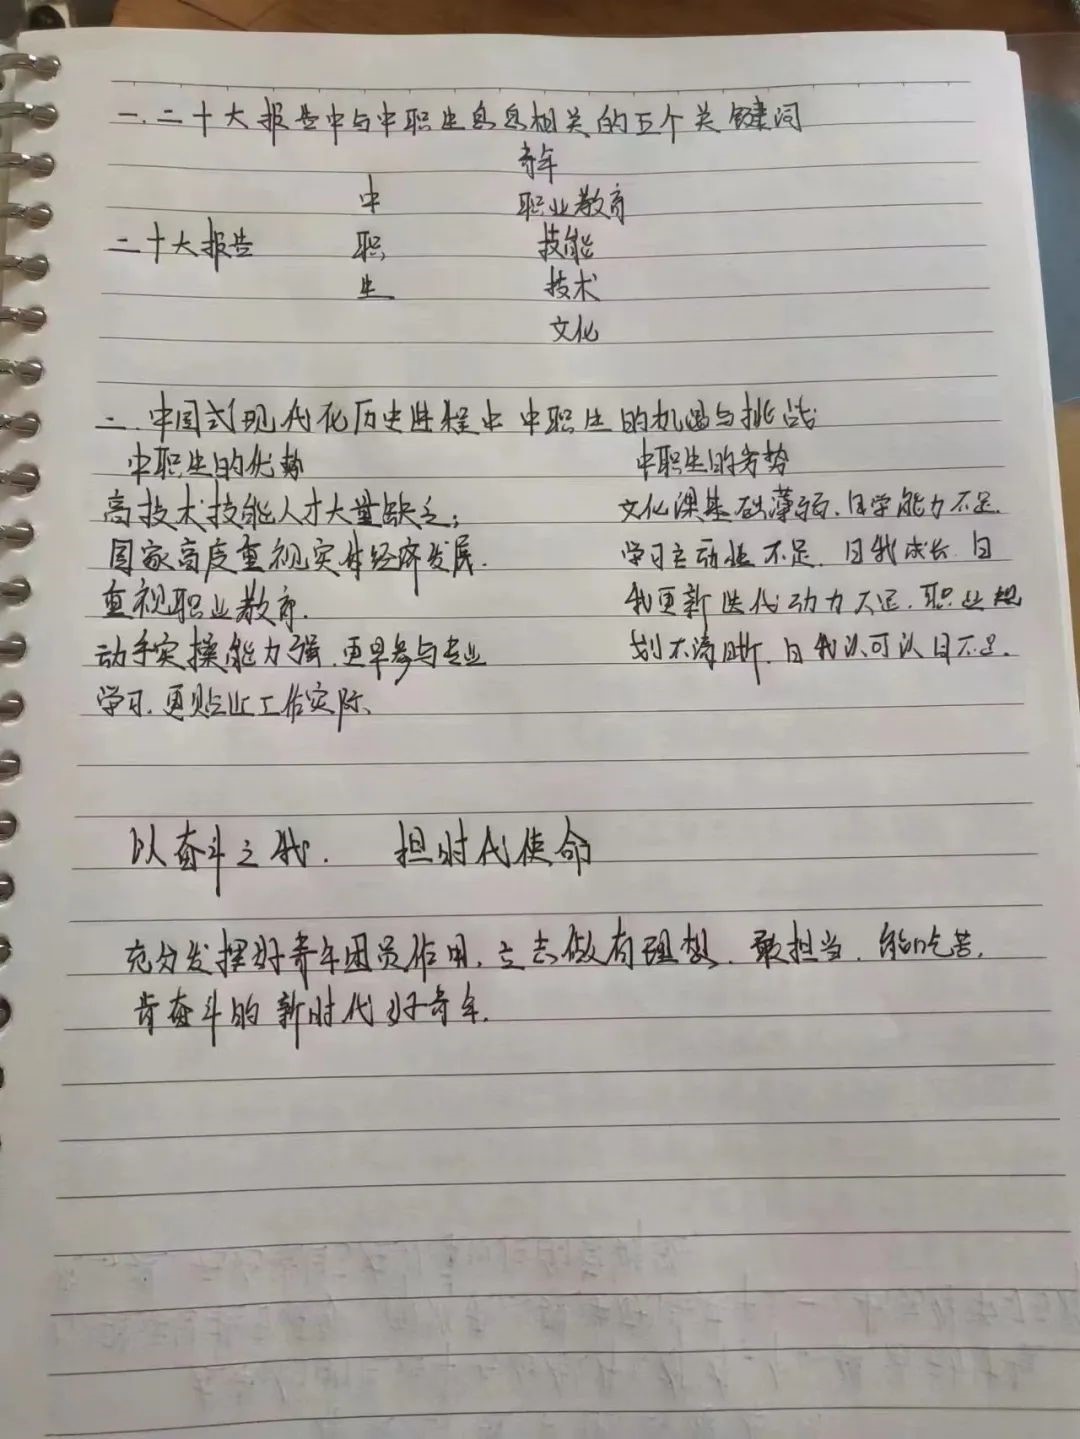 一.二十大报告中与中职生息息相关的五个关键词
青年
中 职业教育
二十大报告 职 技能
生 技术
文化
二.中国式现代化历史进程中 中职生的机遇与挑战
中职生的优势 中职生的劣势
高技术技能人才大量缺乏; 文化课基础薄弱.自学能力不足.
国家高度重视实体经济发展. 学习主动性不足.自我成长.自
重视职业教育. 我更新迭代动力不足.职业规
动手实操能力强.更早参与专业 划不清晰.自我认可认同不足.
学习.更贴近工作实际、
以奋斗之我. 担时代使命
充分发挥好青年团员作用.立志做有理想.敢担当.能吃苦.
肯奋斗的新时代好青年.